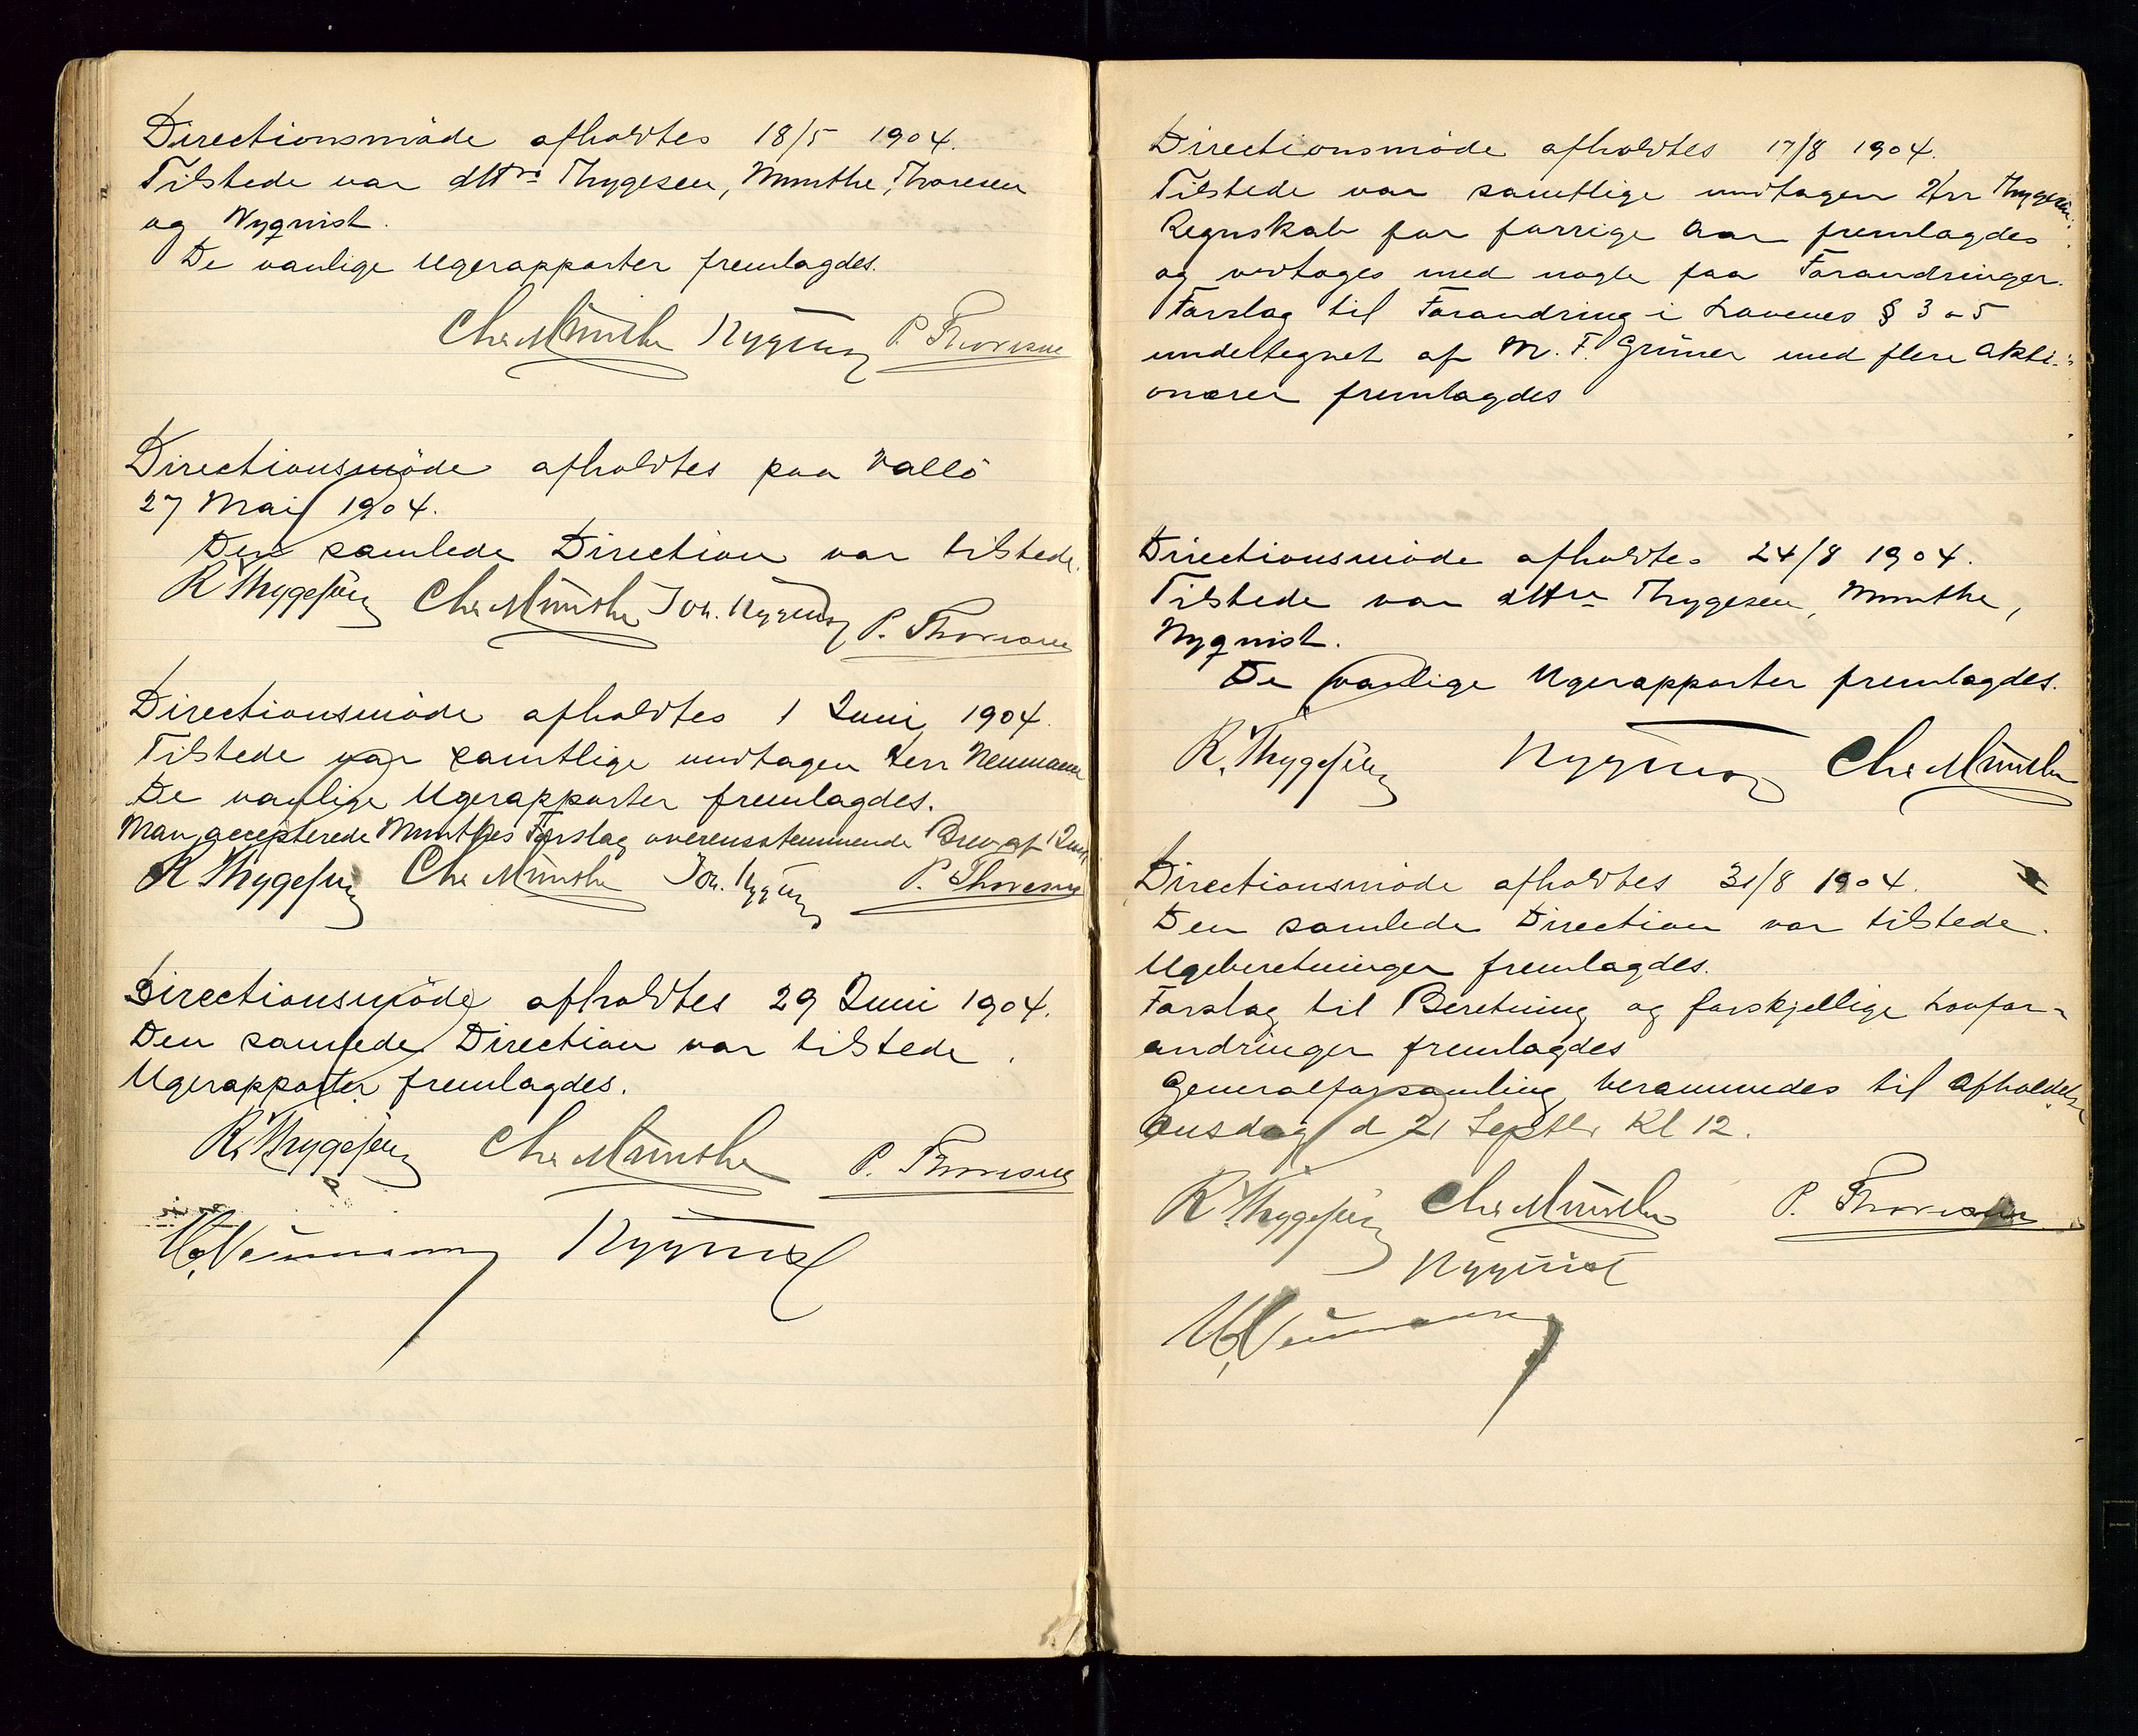 Directionsmöde afholdtes 18/5 1904.
Tilstede var dHrr Thygesen, Munthe, Thoresen
og Nyqvist.
De vanlige Ugerapporter fremlagdes.
Chr Munthe Nyqvist P. Thoresen
Directionsmöde afholdtes paa Vallö
27 Mai 1904.
Den samlede Direction var tilstede.
R Thygesen Chr Munthe Joh. Nyqvist P. Thoresen
Directionsmöde afholdtes 1 Juni 1904.
Tilstede var samtlige undtagen Herr Neumann
De vanlige Ugerapporter fremlagdes.
Man accepterede Munthes Forslag overensstemmende Brev af 1 Juni
R Thygesen Chr Munthe Joh. Nyqvist P. Thoresen
Directionsmöde afholdtes 29 Juni 1904.
Den samlede Direction var tilstede.
Ugerapporter fremlagdes.
R. Thygesen Chr Munthe P. Thoresen
Neumann Nyqvist
Directionsmöde afholdtes 17/8 1904.
Tilstede var samtlige undtagen Hrr Thygesen.
Regnskab for forrige Aar fremlagdes
og vedtoges med nogle faa Forandringer.
Forslag til Forandring i Lovenes § 3 o 5
undertegnet af M. F. Grüner med flere Akti-
onærer fremlagdes
Directionsmöde afholdtes 24/8 1904.
Tilstede var dHrr Thygesen, Munthe,
Nyqvist.
De vanlige Ugerapporter fremlagdes.
R. Thygesen Nyqvist Chr Munthe
Directionsmöde afholdtes 31/8 1904.
Den samlede Direction var tilstede.
Ugeberetninger fremlagdes.
Forslag til Beretning og forskjellige Lovfor-
andringer fremlagdes
Generalforsamling berammedes til Afholdelse
Onsdag d 21 Septbr Kl 12.
R. Thygesen Chr Munthe P. Thoresen
Nyqvist
Neumann